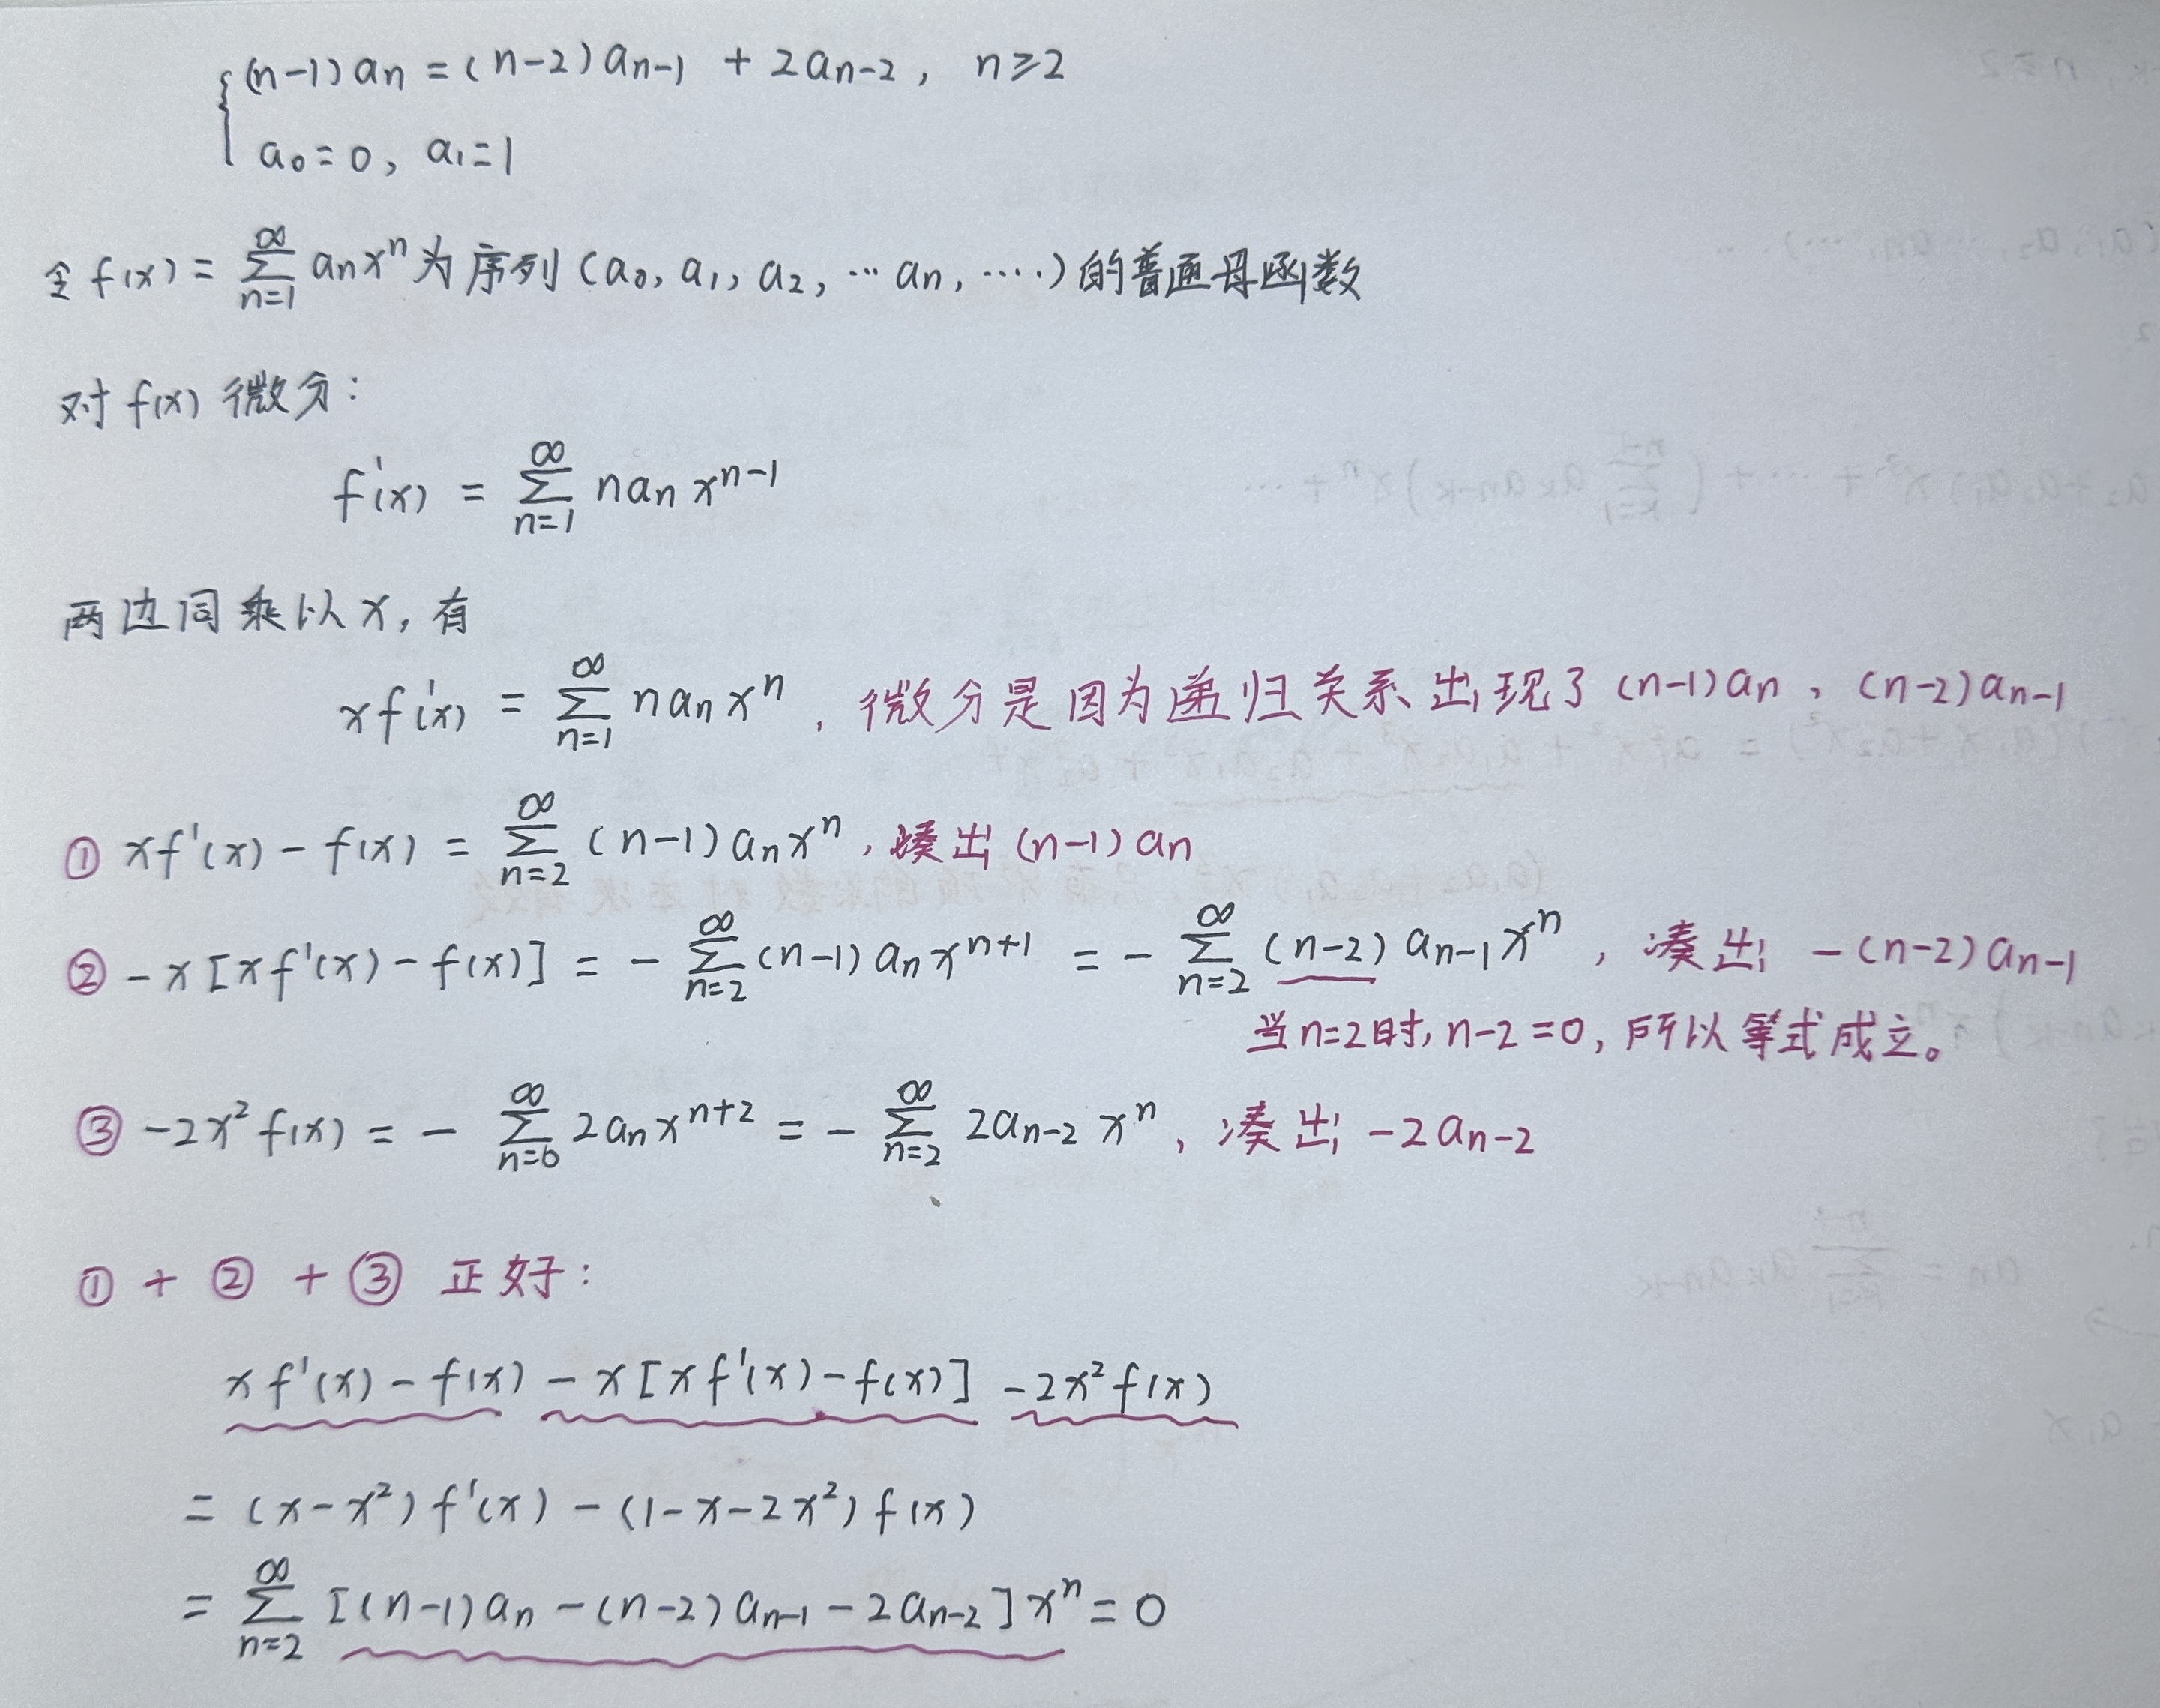 (n-1)an = (n-2)an-1 + 2an-2, n≥2
a0=0, a1=1
令f(x) = ∑n=1∞ anxⁿ为序列(a0, a1, a2, …an, ….)的普通母函数
对f(x)微分:
f'(x) = ∑n=1∞ nan xⁿ⁻¹
两边同乘以x, 有
xf'(x) = ∑n=1∞ nan xⁿ, 微分是因为递归关系出现了(n-1)an、(n-2)an-1
① xf'(x) - f(x) = ∑n=2∞ (n-1)anxⁿ, 凑出(n-1)an
② -x[xf'(x)-f(x)] = -∑n=2∞ (n-1)anxⁿ⁺¹ = -∑n=2∞ (n-2)an-1xⁿ, 凑出 -(n-2)an-1
当n=2时, n-2=0, 所以等式成立。
③ -2x²f(x) = -∑n=0∞ 2anxⁿ⁺² = -∑n=2∞ 2an-2 xⁿ, 凑出 -2an-2
① + ② + ③ 正好:
xf'(x) - f(x) - x[xf'(x)-f(x)] -2x²f(x)
= (x-x²)f'(x) - (1-x-2x²)f(x)
= ∑n=2∞ [(n-1)an-(n-2)an-1-2an-2]xⁿ=0